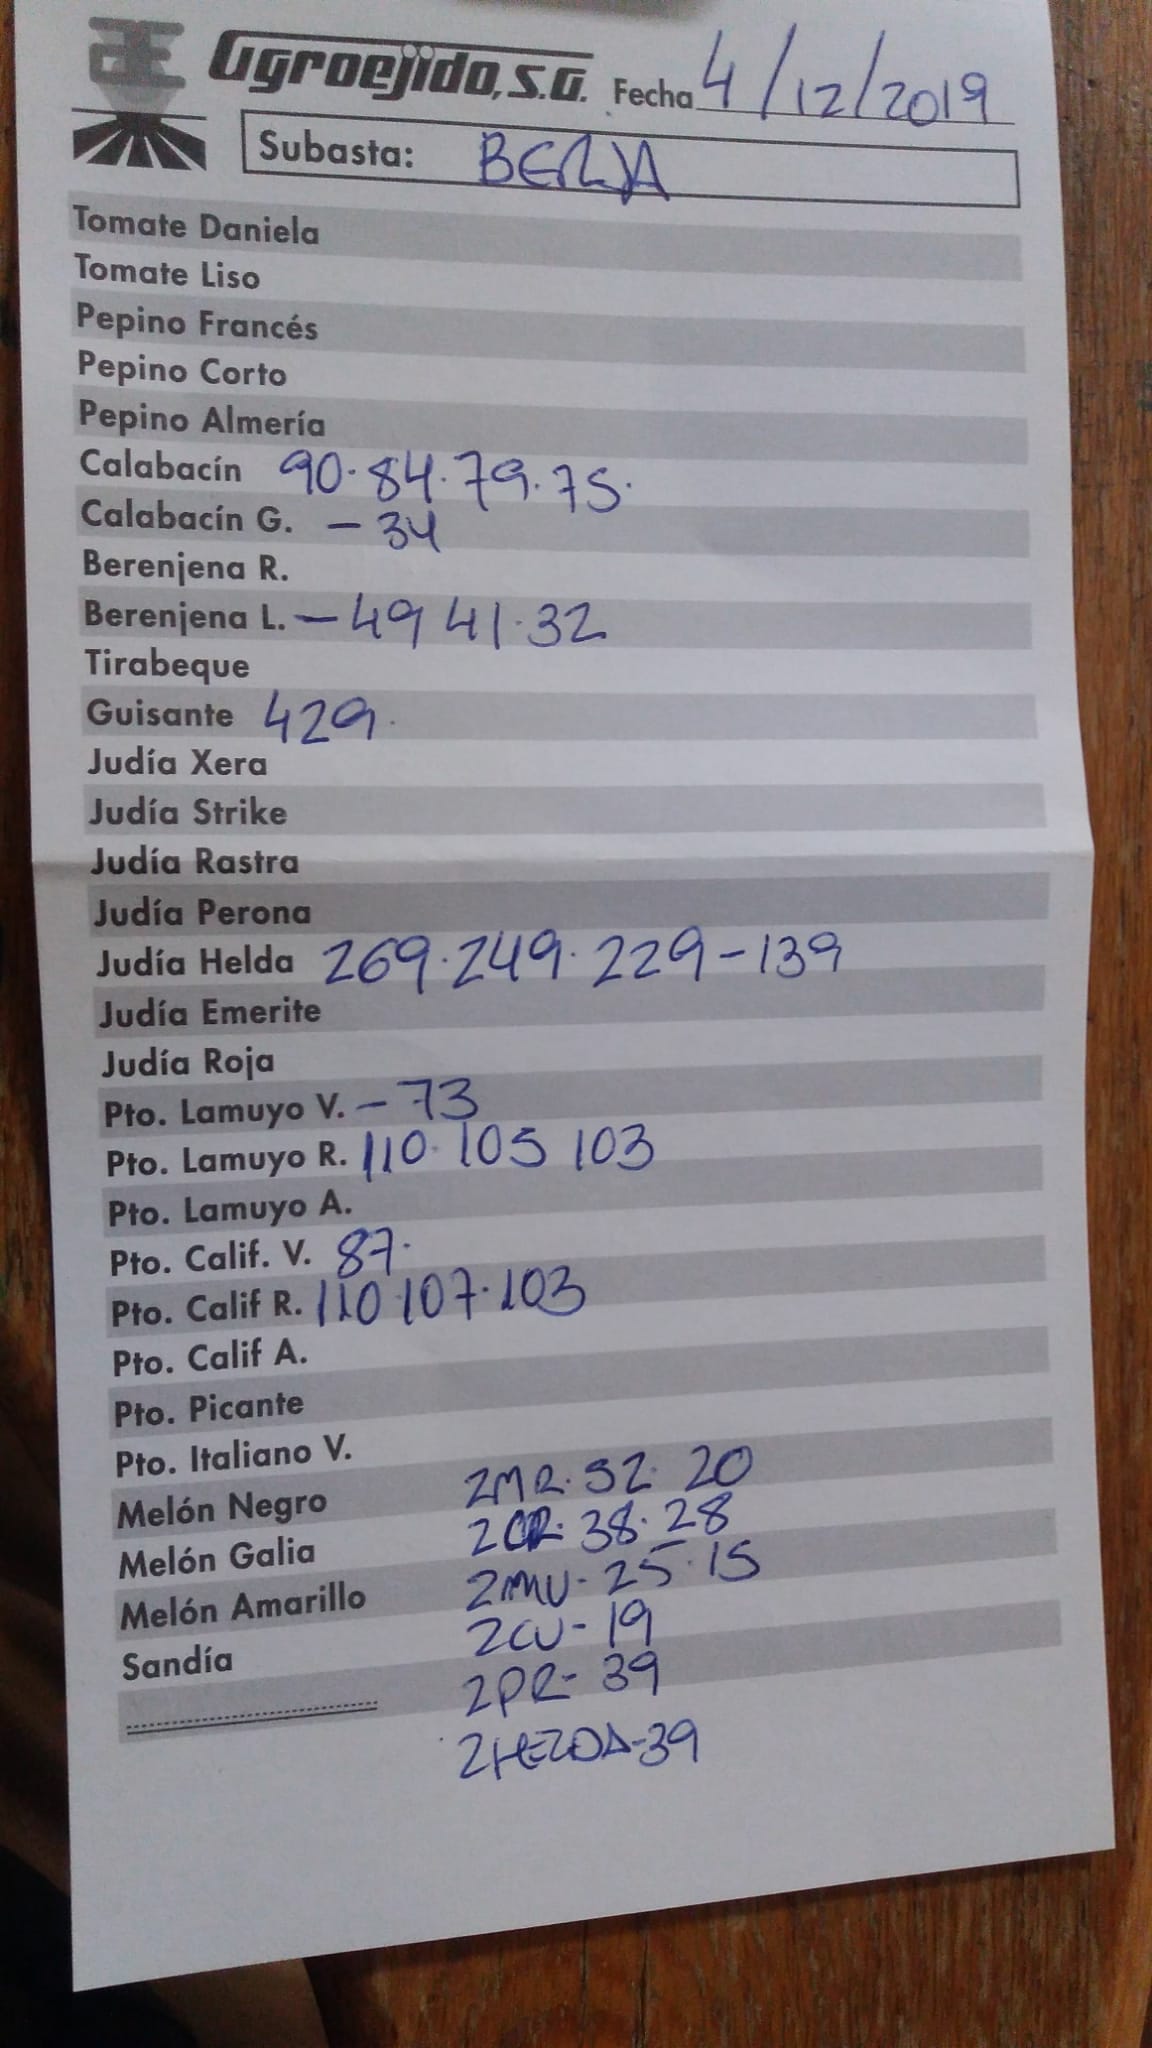 Agroejido, S.A. Fecha 4/12/2019
Subasta: BERJA
Tomate Daniela
Tomate Liso
Pepino Francés
Pepino Corto
Pepino Almería
Calabacín 90.84.79.75.
Calabacín G. - 34
Berenjena R.
Berenjena L. - 49 41.32
Tirabeque
Guisante 429.
Judía Xera
Judía Strike
Judía Rastra
Judía Perona
Judía Helda 269.249.229-139
Judía Emerite
Judía Roja
Pto. Lamuyo V. - 73
Pto. Lamuyo R. 110. 105 103
Pto. Lamuyo A.
Pto. Calif. V. 87.
Pto. Calif R. 110 107.103
Pto. Calif A.
Pto. Picante
Pto. Italiano V.
Melón Negro 2MR. 52. 20
Melón Galia 2CR. 38.28
Melón Amarillo 2MV- 25.15
Sandía 2CV- 19
2PR- 39
2HELDA-39